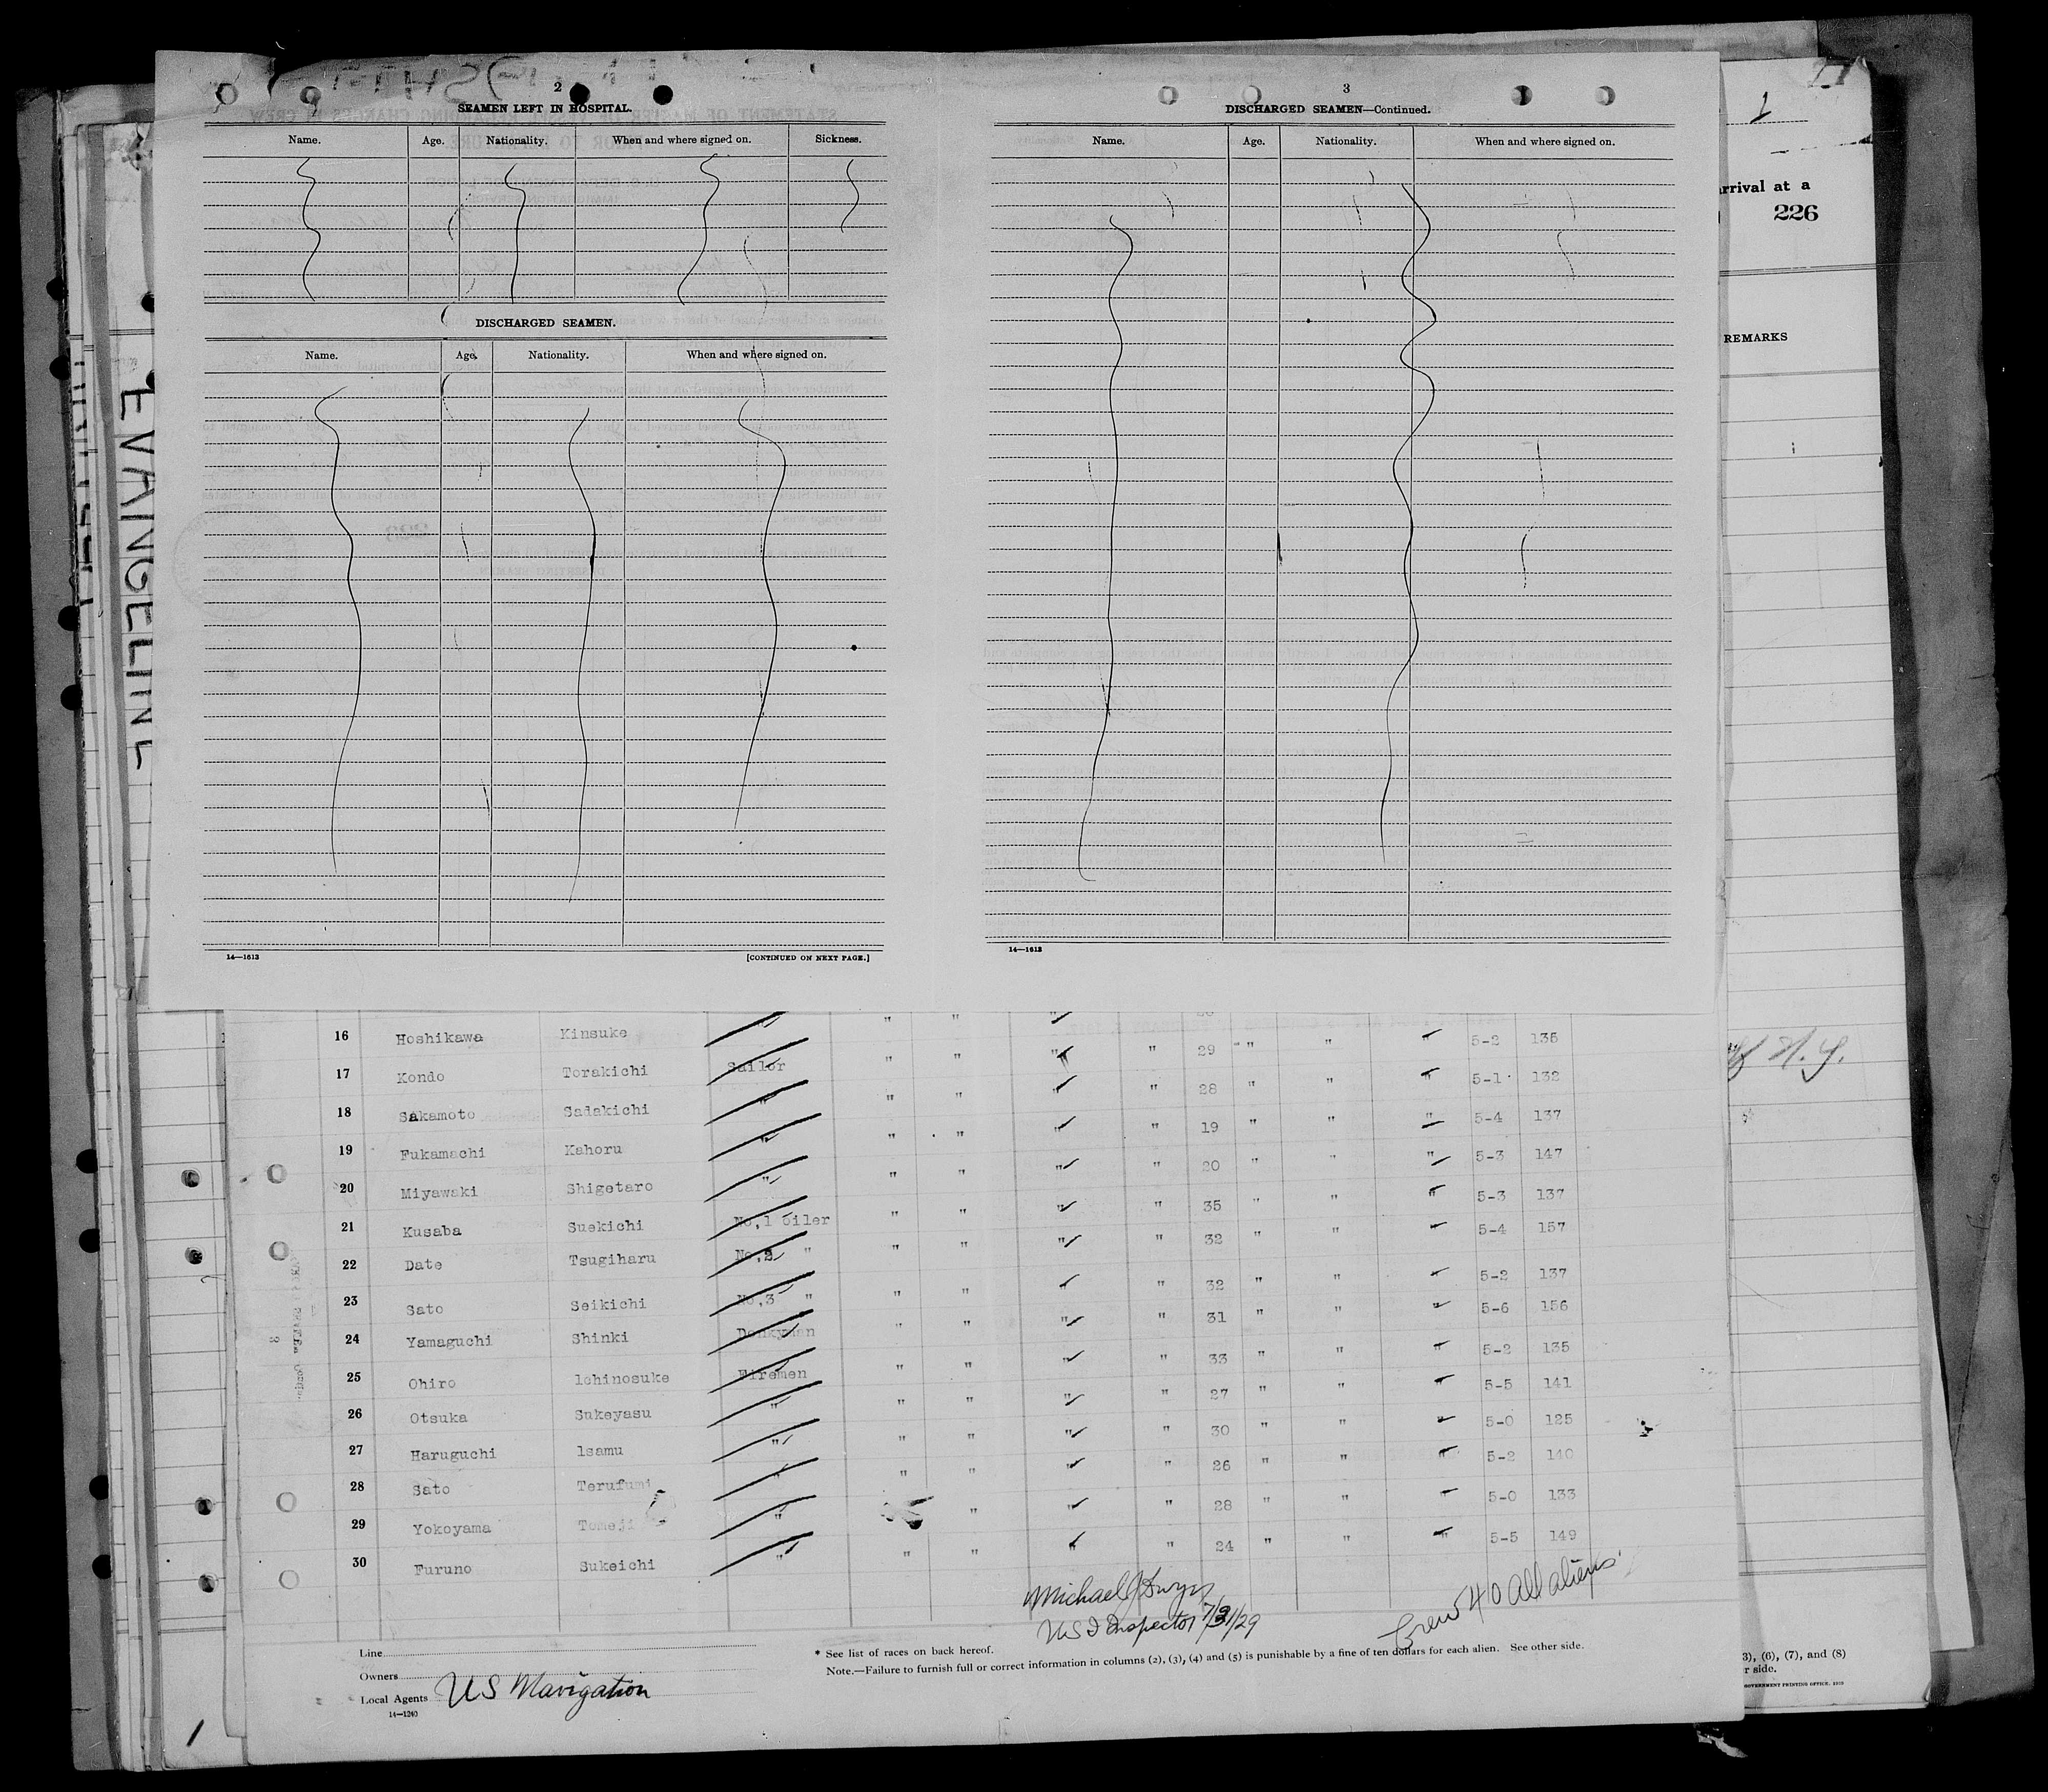 2
SEAMEN LEFT IN HOSPITAL.
Name. Age. Nationality. When and where signed on. Sickness.
DISCHARGED SEAMEN.
Name. Age. Nationality. When and where signed on.
14—1613 [CONTINUED ON NEXT PAGE.]
3
DISCHARGED SEAMEN—Continued.
Name. Age. Nationality. When and where signed on.
14—1613
arrival at a
226
REMARKS
N.Y.
EVANGELINE
16 Hoshikawa Kinsuke " " " "
17 Kondo Torakichi Sailor " " " " 29 " " " 5-2 135
18 Sakamoto Sadakichi " " " " " 28 " " " 5-1 132
19 Fukamachi Kahoru " " " " " 19 " " " 5-4 137
20 Miyawaki Shigetaro " " " " " 20 " " " 5-3 147
21 Kusaba Suekichi No,1 Oiler " " " " 35 " " " 5-3 137
22 Date Tsugiharu No,2 " " " " " 32 " " " 5-4 157
23 Sato Seikichi No,3 " " " " " 32 " " " 5-2 137
24 Yamaguchi Shinki Donkyman " " " " 31 " " " 5-6 156
25 Ohiro lchinosuke Firemen " " " " 33 " " " 5-2 135
26 Otsuka Sukeyasu " " " " " 27 " " " 5-5 141
27 Haruguchi lsamu " " " " " 30 " " " 5-0 125
28 Sato Terufumi " " " " " 26 " " " 5-2 140
29 Yokoyama Tomeji " " " " 28 " " " 5-0 133
30 Furuno Sukeichi " " " " " 24 " " " 5-5 149
Michael J Dwyer
US I Inspector 7/31/29
Crew 40 All aliens
Line
Owners
Local Agents US Navigation
14—1240
* See list of races on back hereof.
Note.—Failure to furnish full or correct information in columns (2), (3), (4) and (5) is punishable by a fine of ten dollars for each alien. See other side.
3), (6), (7), and (8)
r side.
GOVERNMENT PRINTING OFFICE
1